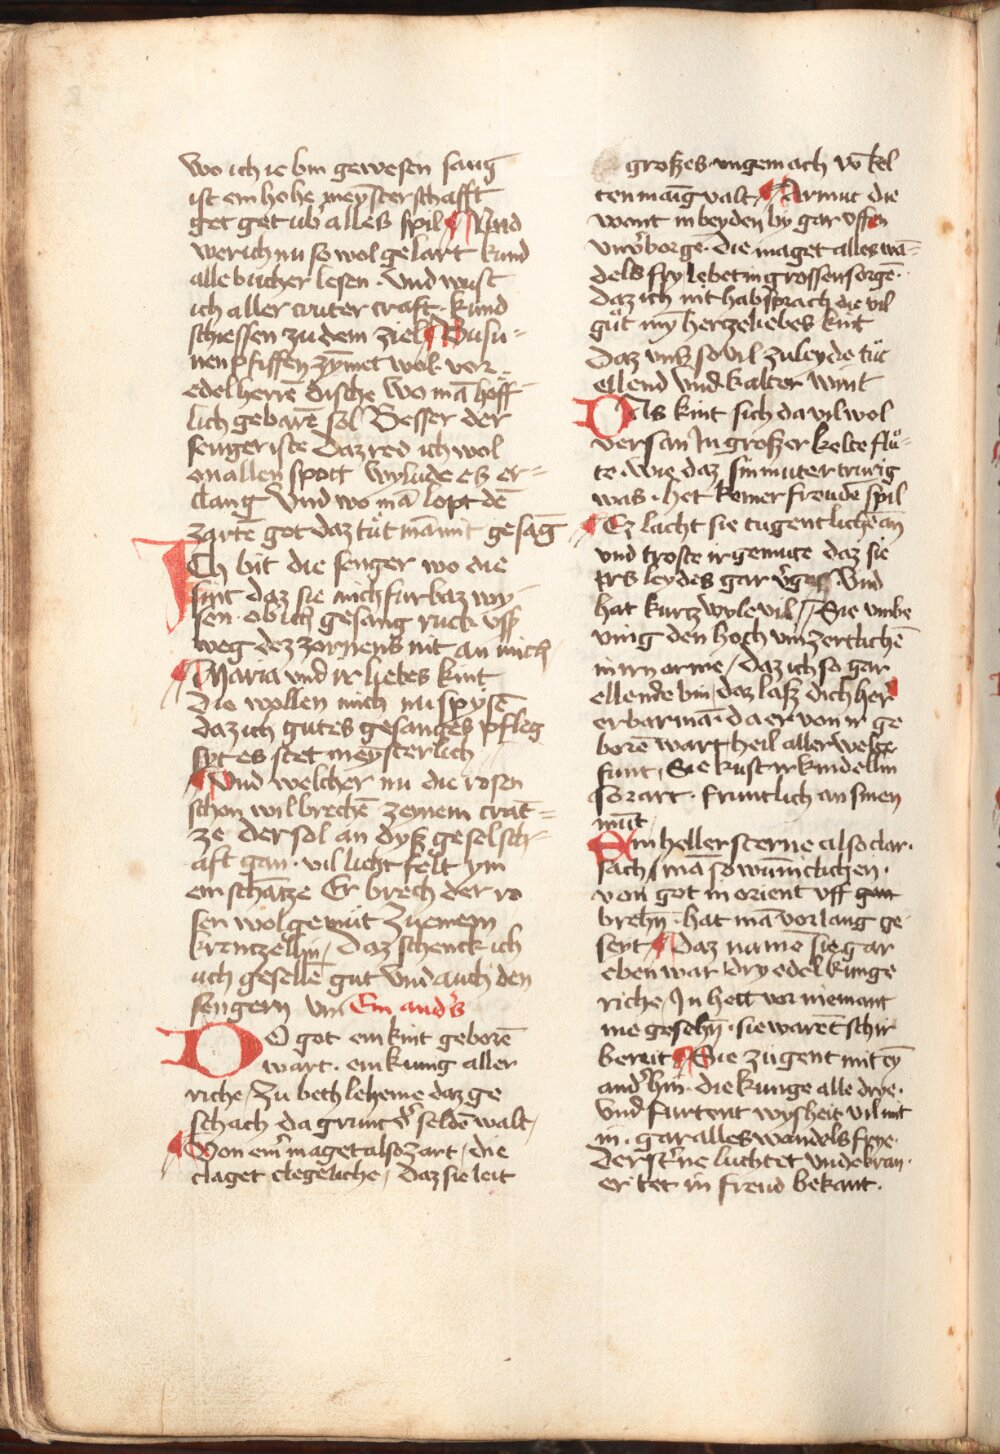 wo ich ie bin gewesen sang
ist ein hohe meysterschafft
get get ub alles spil ¶ Und
werich nu so wol gelart kund
alle bucher lesen · Und wust
ich aller cruter craft · kund
schiessen zu dem ziel ¶ Busu-
nen pfiffen zymet wol · vor
edel herrē dische Wo mā hoff
lich gebarē sol Besser der
senger iste Daz red ich wol
on allen spott Wy lude es er-
clang Und wo mā lopt dē
zartē got daz tüt mā mit gesāg
Ich bit die senger wo die
sint daz sie mich furbaz wy
sen · ob ich gesang ruck uß
weg dez zornens nit an mich
¶ Maria und ir liebes kint
die wollen mich nu spysē
daz ich gutes gesanges pfleg
syt es stet meysterlich
¶ Und welcher nu die rosen
schon wil brechē zeynem crātz-
ze der sol an dyß geselsch-
aft gan · vil licht felt ym
ein schātze Er brech der ro
sen wol gemüt Zu einem
krentzellin / Daz schenck ich
uch gesellē gut Und auch den
sengern Un̄ Ein anders
DO got ein kint geborē
wart · ein kung aller
riche / Zu beth leheme daz ge
schach da grunt d̓ selden walt /
¶ Von eīm maget also zart / die
claget clegeliche / Daz sie leit
großes ungemach vō kel
ten manig valt / ¶ Armut die
want in beyden by gar uffen
Unv̓borgē · die maget alles wā-
dels fry lebet in grossen sorgē ·
Daz ich nit hab sprach die vil
gůt myn hertzeliebes kint
Daz uns so vil zu leyde tüt
ellend und kalter wint
DAs kint sich da vil wol
versan In großer kelte flů-
te · Wie daz sin muter trurig
was · het keiner freudē spil
¶ Ez lacht sie tugentlichē an
und troste ir gemute daz sie
irs leydes gar v̓gas Und
hat kurtz wyle vil / Sie umbe
ving den hoch un̄ zertlichē
in irn arme / daz ich so gar
ellende bin daz laß dich her
erbarmā · da er von ir ge
borē wart heil aller welde
funt / Sie kust ir kindellin
so zart · fruntlich an sinen
munt
Ein heller sterne also clar ·
sach mā so wūniclichen ·
von got in orient uff gan
brehn · hat mā vor lang ge
seyt ¶ Daz namē sie gar
eben war dry edel kunge
riche / In hett vor niemant
nie gesehn · sie warēt schir
bereit ¶ Sie zugent mit eȳ
and̓ hin · die kunge alle drye ·
Und furtent wysheit vil mit
in · gar alles wandels frye ·
Der st̓ne luchtet und bran ·
er tet in freud bekant ·